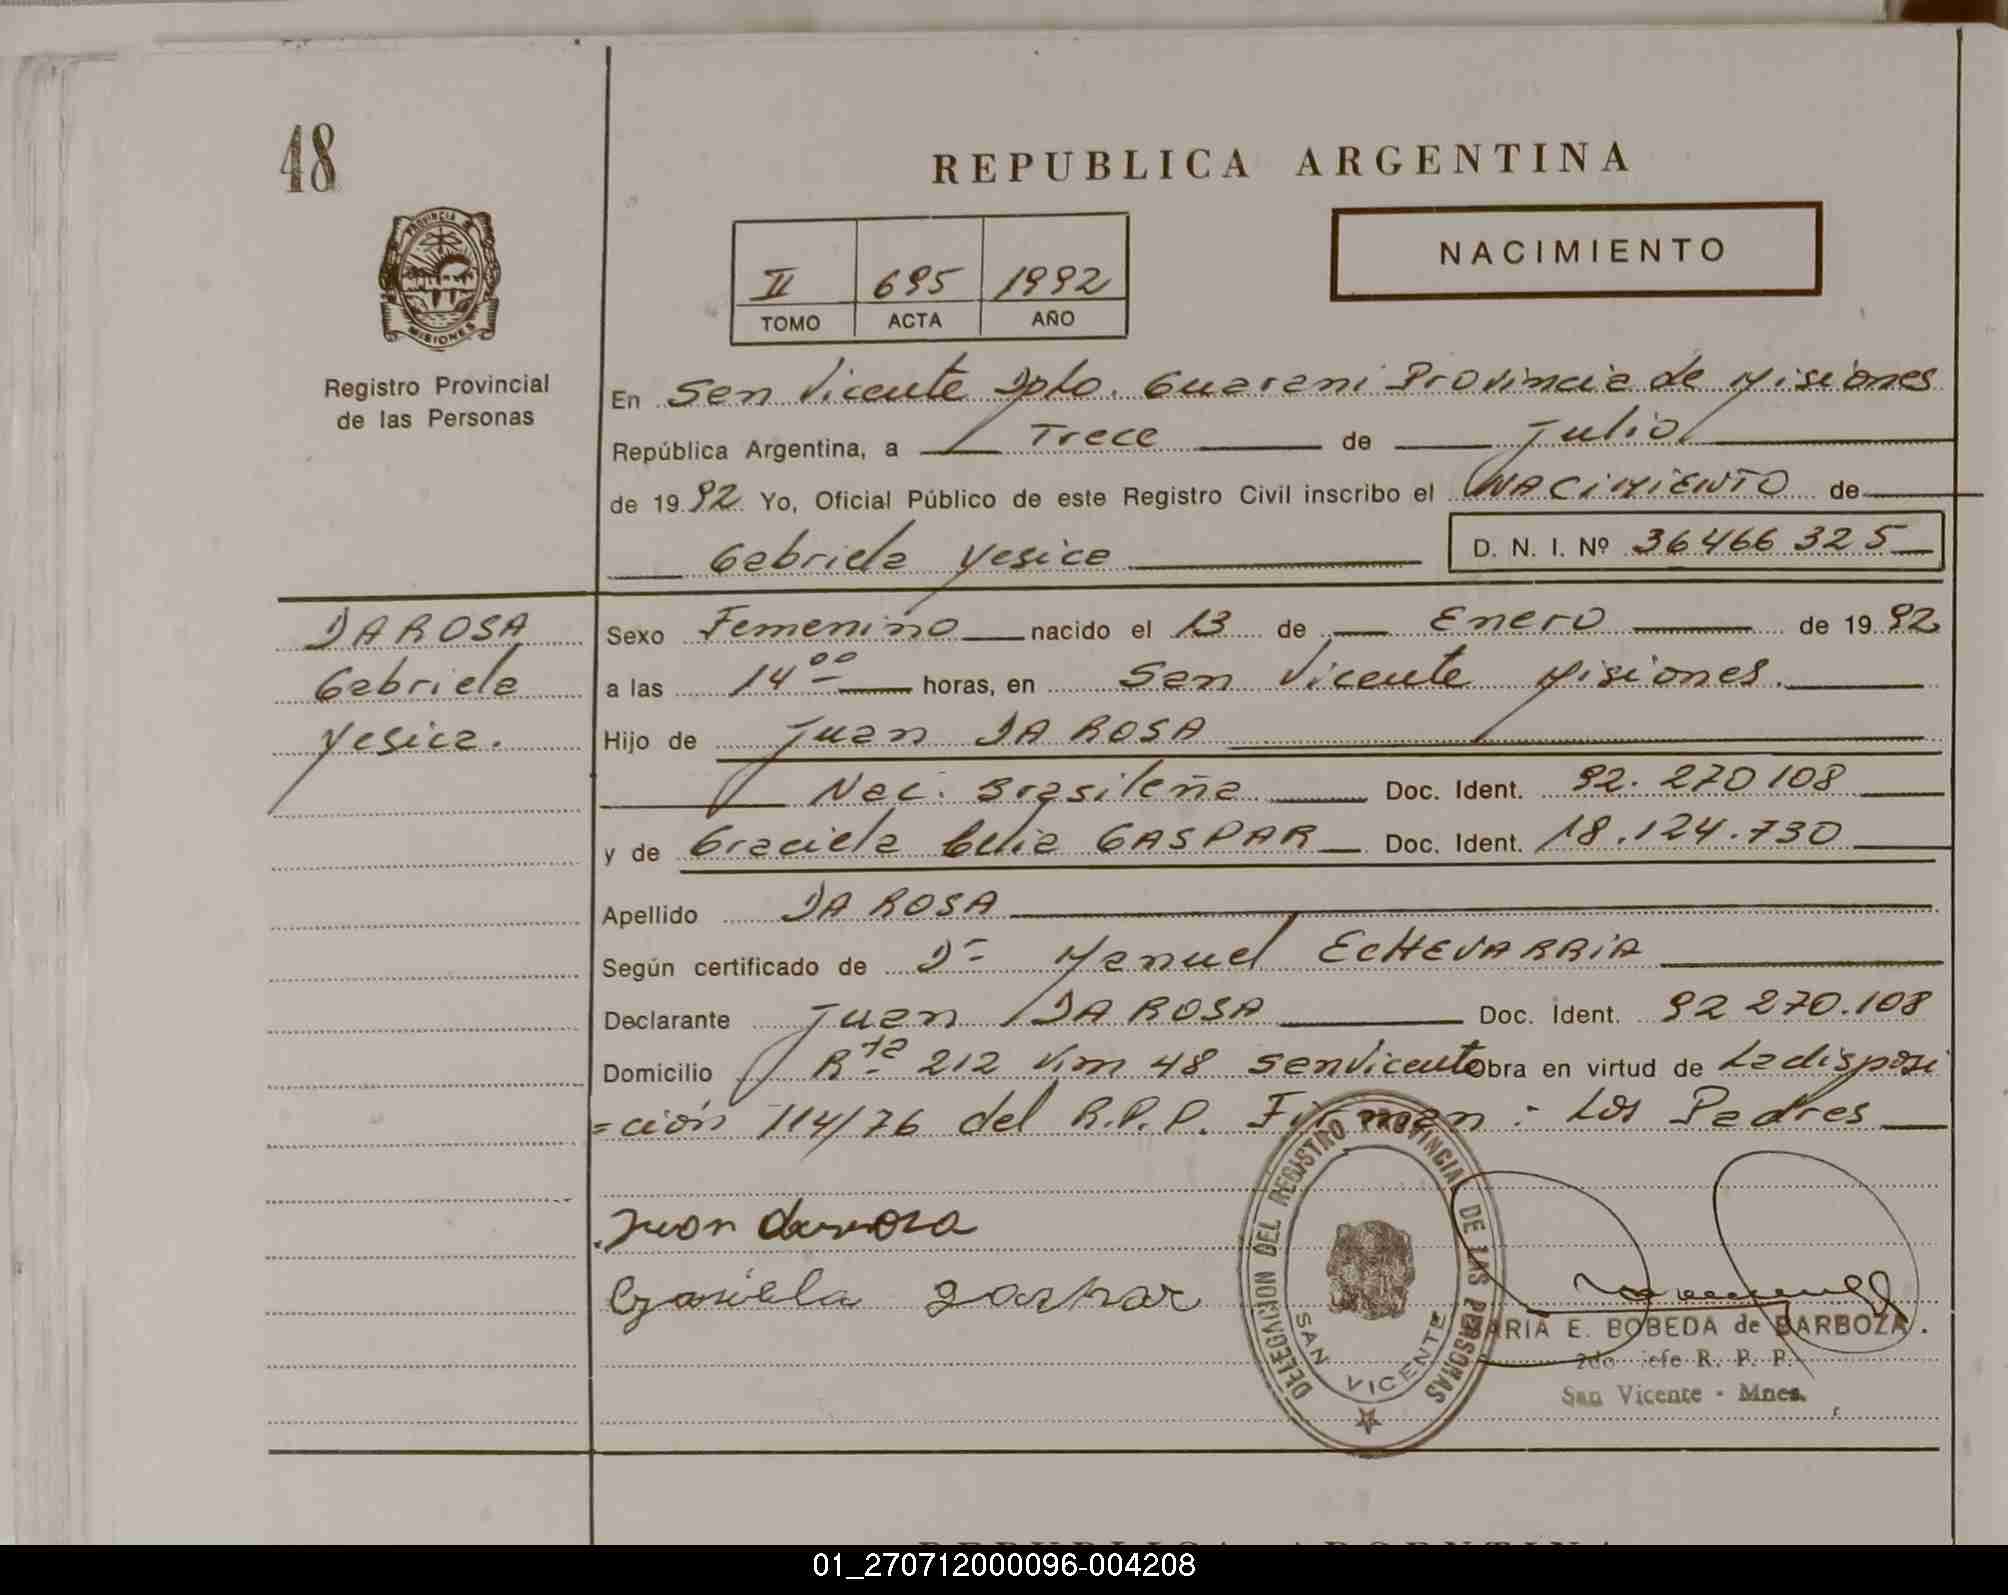 48
REPUBLICA ARGENTINA
PROVINCIA
MISIONES
NACIMIENTO
II 695 1992
TOMO ACTA AÑO
Registro Provincial
de las Personas
En San Vicente Dpto. Guarani Provincia de Misiones
República Argentina, a Trece de Julio
de 1992 Yo, Oficial Público de este Registro Civil inscribo el NACIMIENTO de
Gabriela Yesica D. N. I. Nº 36466325
DA ROSA
Gabriela
Yesica.
Sexo Femenino nacido el 13 de Enero de 1992
a las 14⁰⁰ horas, en San Vicente Misiones.
Hijo de Juan DA ROSA
Nac. Brasileña Doc. Ident. 92.270108
y de Graciela Celia GASPAR Doc. Ident. 18.124.730
Apellido DA ROSA
Según certificado de Dr Manuel ECHEVARRIA
Declarante Juan DA ROSA Doc. Ident. 92 270.108
Domicilio Rta 212 Km 48 San Vicente Obra en virtud de La disposi
=ción 114/76 del R.P.P. Firman: Los Padres
Juan darosa
Graciela gaspar
DELEGACION DEL REGISTRO PROVINCIAL DE LAS PERSONAS
SAN VICENTE
MARIA E. BOBEDA de BARBOZA.
2do jefe R. P. P.
San Vicente - Mnes.
REPUBLICA ARGENTINA
01_270712000096-004208